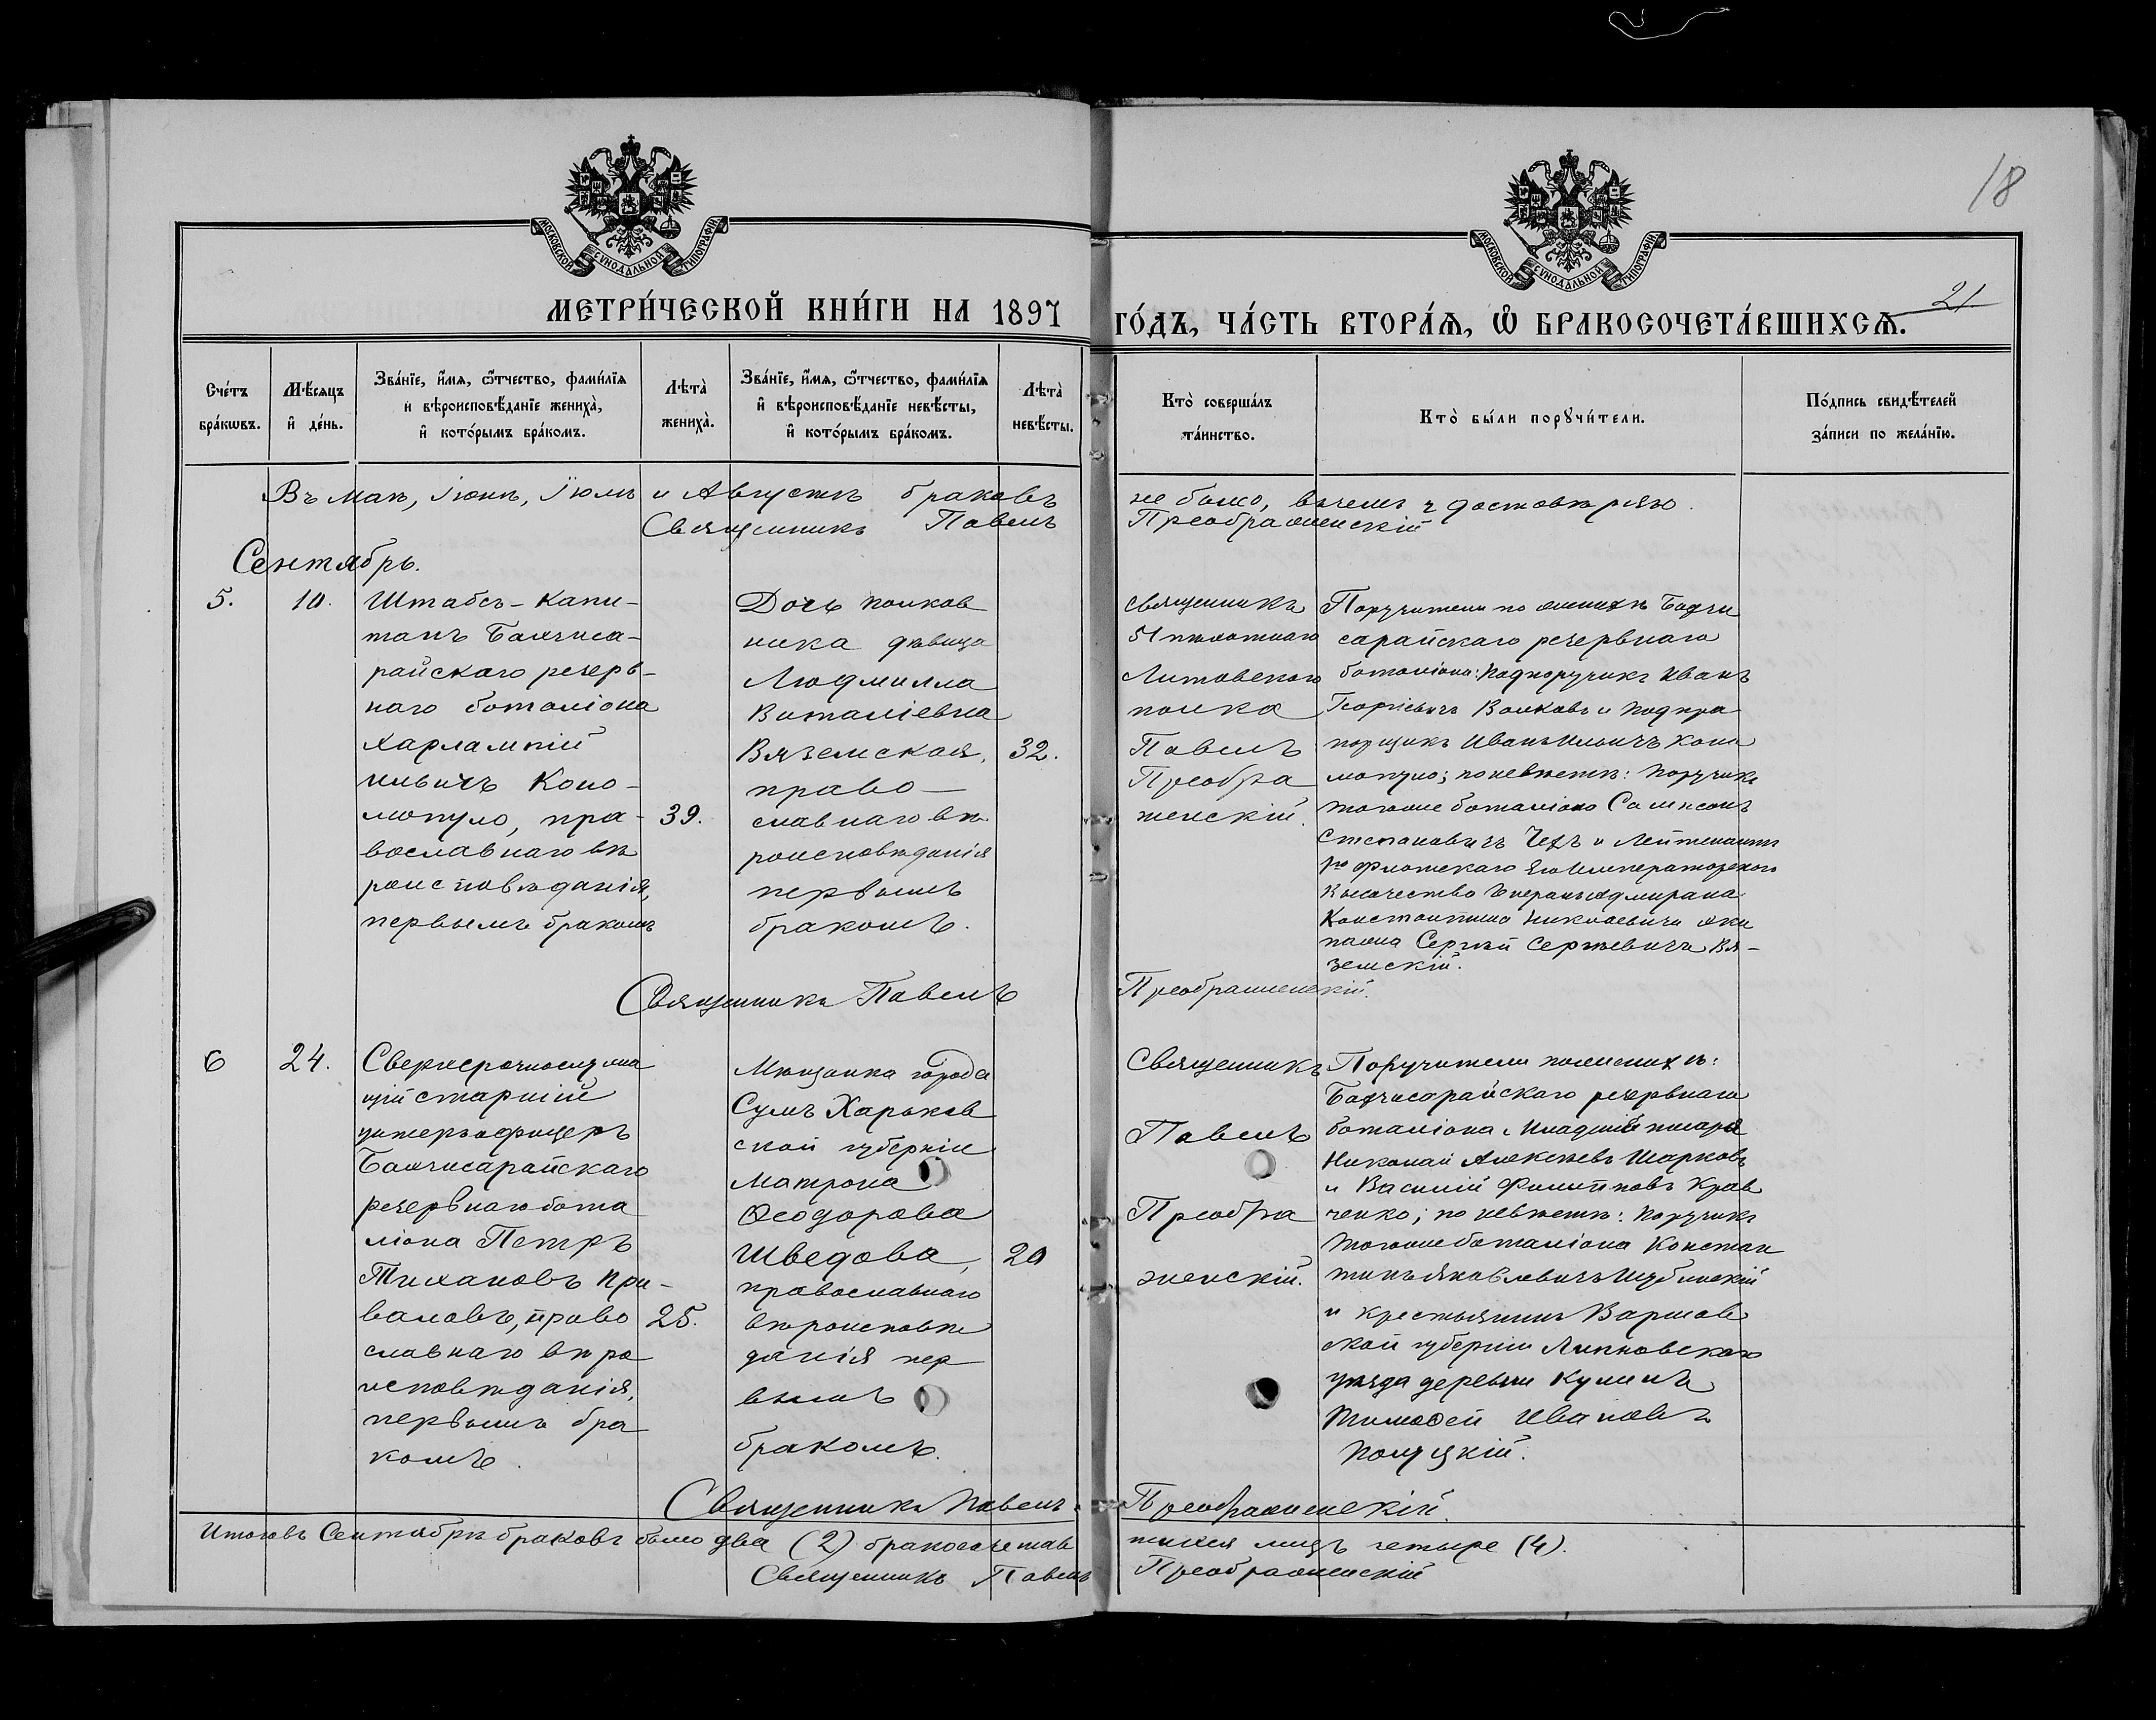 18
МОСКОВСКОЙ СѴНОДАЛЬНОЙ ТИПОГРАФІИ.
МОСКОВСКОЙ СѴНОДАЛЬНОЙ ТИПОГРАФІИ.
МЕТРИ́ЧЕСКОЙ КНИ́ГИ НА 1897 ГО́ДЪ, ЧА́СТЬ ВТОРА́Ѧ, Ѽ БРАКОСОЧЕТА́ВШИХСѦ.
21
Сче́тъ бра́кѡвъ.
Мѣ́сяцъ и҆ де́нь.
Зва́нїе, и҆́мѧ, ѻ҆́тчество, фами́лїѧ
и҆ вѣроисповѣ́данїе жениха̀,
и҆ кото́рымъ бра́комъ.
Лѣта̀ жениха̀.
Зва́нїе, и҆́мѧ, ѻ҆́тчество, фами́лїѧ
и҆ вѣроисповѣ́данїе невѣ́сты,
и҆ кото́рымъ бра́комъ.
Лѣта̀ невѣ́сты.
Кто̀ соверша́лъ та́инство.
Кто̀ бы́ли порꙋчи́тели.
По́дпись свидѣ́телей
за́писи по жела́нїю.
Въ маѣ, Іюнѣ, Іюлѣ и Августѣ браковъ не было, въ чемъ и достовѣряю
Священникъ Павелъ Преображенскій
Сентябрь.
5.
10.
Штабсъ-Капи-
танъ Бахчиса-
райскаго резерв-
наго баталіона
Харлампій
Ильичъ Коно-
мопуло, пра-
вославнаго вѣ
роисповѣданія,
первымъ бракомъ
39.
Дочь полков
ника дѣвица
Людмилла
Виталіевна
Вяземская,
право-
славнаго вѣ
роисповѣданія
первымъ
бракомъ.
32.
Священникъ
51 пѣхотнаго
Литовскаго
полка
Павелъ
Преобра
женскій.
Поручители по женихѣ Бахчи
сарайскаго резервнаго
баталіона: Подпоручикъ Иванъ
Георгіевичъ Волковъ и Подпра
порщикъ Иванъ Ильичъ Коно
мопуло; по невѣстѣ: Поручикъ
тогоже баталіона Самсонъ
Степановичъ Чехъ и Лейтенантъ
го флотскаго Его Императорскаго
Высочества Генералъ адмирала
Константина Николаевича эки
пажа Сергѣй Сергѣевичъ Вя-
земскій.
Священникъ Павелъ Преображенскій.
6
24.
Сверхсрочнослужа
щій старшій
унтеръ офицеръ
Бахчисарайскаго
резервнаго бата
ліона Петръ
Тихановъ При-
валовъ, право
славнаго вѣро
исповѣданія,
первымъ бра
комъ.
25.
Мѣщанка города
Сумъ Харьков
ской губерніи
Матрона
Ѳеодорова
Шведова,
православнаго
вѣроисповѣ
данія пер
вымъ
бракомъ.
20
Священникъ
Павелъ
Преобра
женскій.
Поручители по женихѣ:
Бахчисарайскаго резервнаго
баталіона Младшій писарь
Николай Алексѣевъ Шарковъ
и Василій Филиповъ Крав
ченко; по невѣстѣ: Поручикъ
тогоже баталіона Констан
тинъ Яковлевичъ Шубинскій
и крестьянинъ Варшав
ской губерніи Липновскаго
уѣзда деревни
Тимоѳей Ивановъ
Священникъ Павелъ Преображенскій.
Итого въ Сентябрѣ браковъ было два (2) бракосочетав
шихся лицъ четыре (4).
Священникъ Павелъ Преображенскій